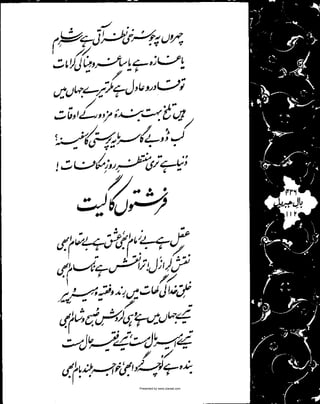 چہروں پہ جو سرخی نظر آتی ہے سرِ شام
یا غازہ ہے یا ساغر و مینا کی کرامات
تو قادر و عادل ہے مگر تیرے جہاں میں
ہیں تلخ بہت بندۂ مزدور کے اوقات
کب ڈوبے گا سرمایہ پرستی کا سفینہ؟
دنیا ہے تری منتظرِ روزِ مکافات!
فرشتوں کا گیت
عقل ہے بے زمام ابھی عشق ہے بے مقام ابھی
نقش گرِ ازل! ترا نقش ہے ناتمام ابھی
خلقِ خدا کی گھات میں رند و فقیہ و میر و پیر
تیرے جہاں میں ہے وہی گردشِ صبح و شام ابھی
تیرے امیر مال مست، تیرے فقیر حال مست
بندہ ہے کوچہ گرد ابھی، خواجہ بلند بام ابھی
بالِ جبریل
۱۱۲